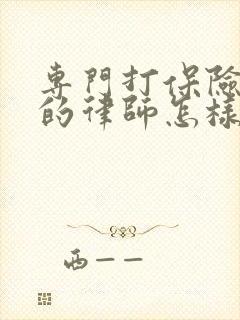 專門打保險
的律師怎樣
西一一